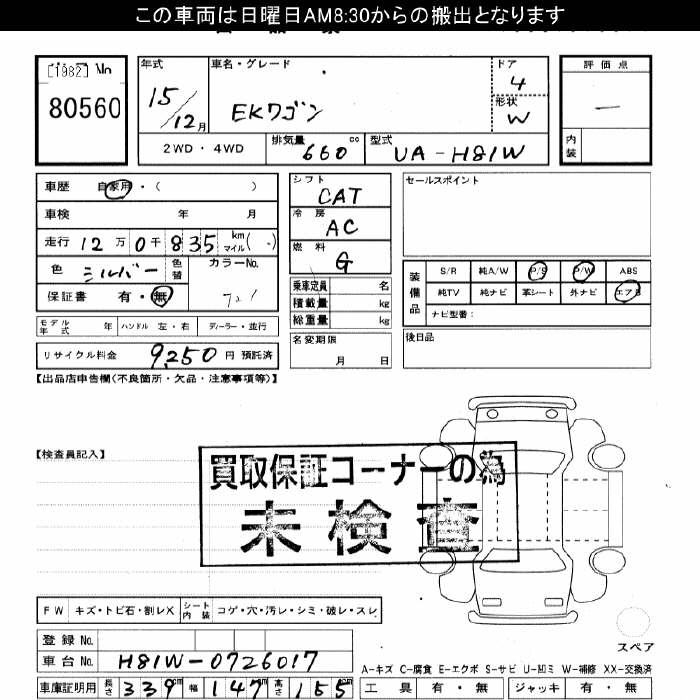 この車両は日曜日AM8:30からの搬出となります
[1982] No
80560
年式 15/12月
車名・グレード EKワゴン
ドア 4
形状 W
評価点 —
内装
2WD・4WD
排気量 660 cc
型式 UA-H81W
車歴 自家用・( )
車検 年 月
走行 12万0千835 km マイル( )
色 シルバー 色替 カラーNo.
保証書 有・無
モデル年式 年 ハンドル 左・右 ディーラー・並行
リサイクル料金 9,250 円 預託済
シフト CAT
冷房 AC
燃料 G
乗車定員 名
積載量 kg
総重量 kg
名変期限 月 日
セールスポイント
装備品
S/R 純A/W P/S P/W ABS
純TV 純ナビ 革シート 外ナビ エアB
ナビ型番:
後日品
【出品店申告欄(不良箇所・欠品・注意事項等)】
【検査員記入】
買取保証コーナーの為
未検査
FW キズ・トビ石・割レX シート内装 コゲ・穴・汚レ・シミ・破レ・スレ
スペア
登録No.
車台No. H81W-0726017
A-キズ C-腐食 E-エクボ S-サビ U-凹ミ W-補修 XX-交換済
車庫証明用 長さ 339 cm 幅 147 cm 高さ 155 cm
工具 有・無 ジャッキ 有・無